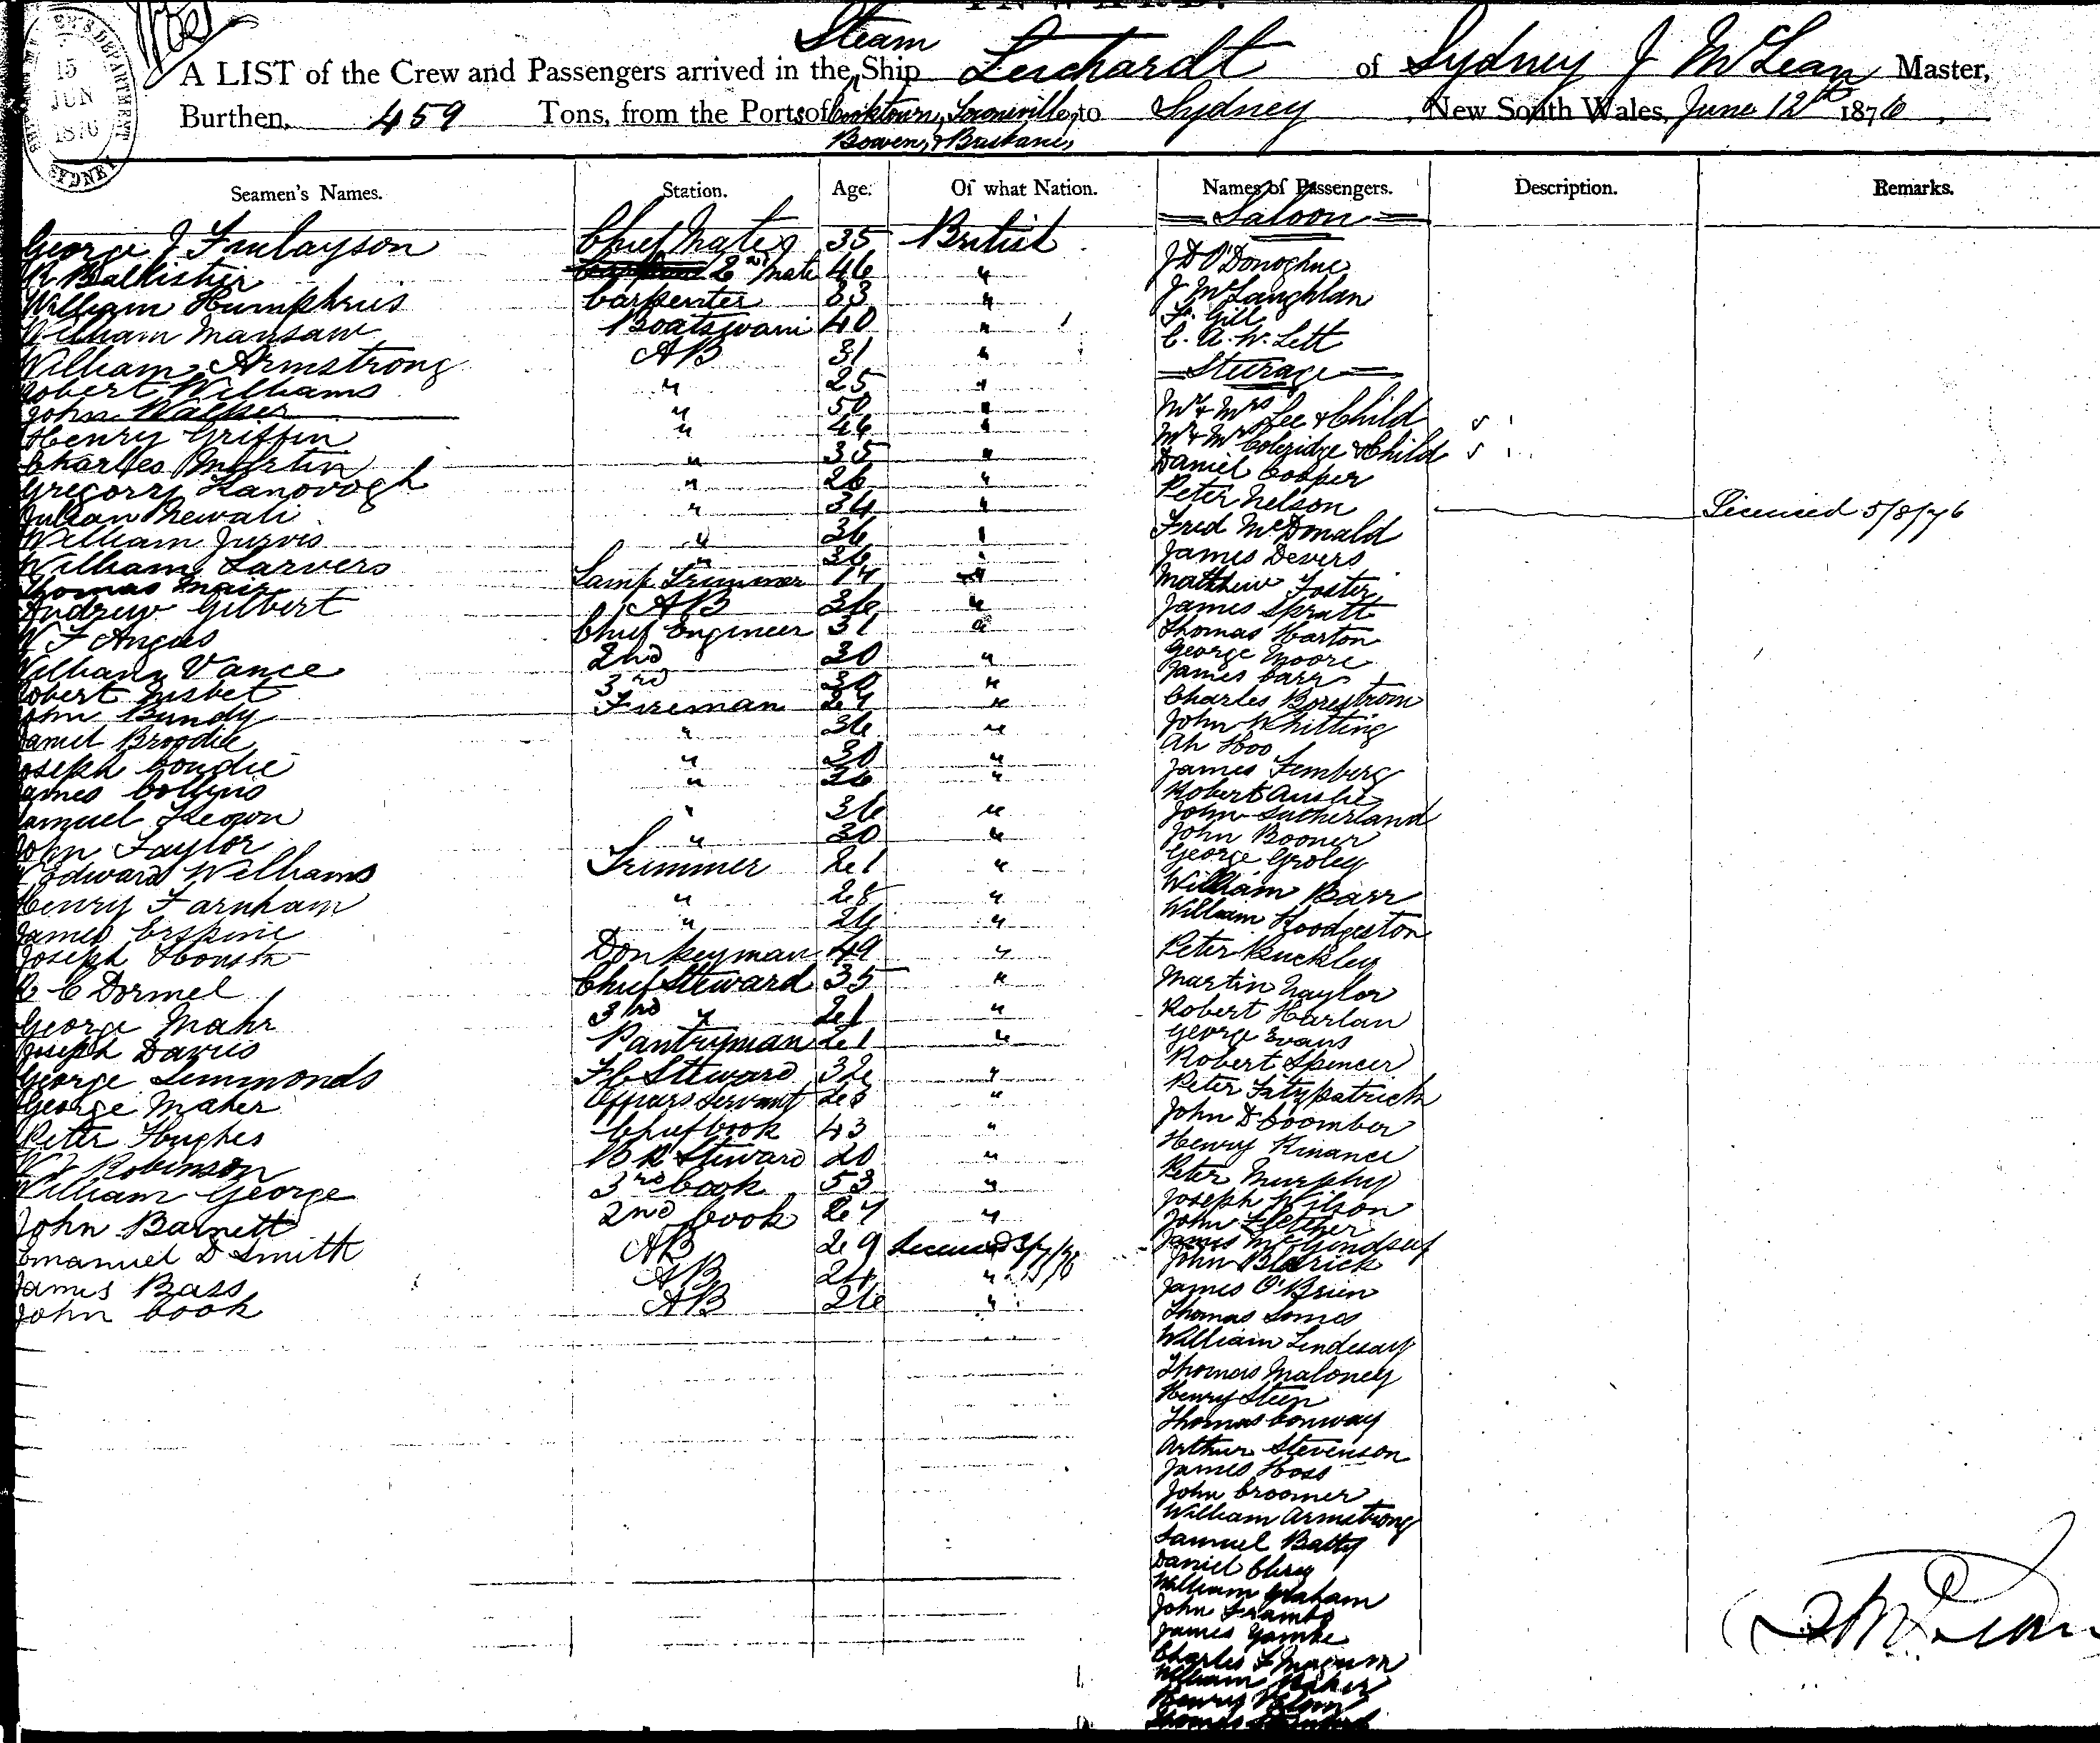 15
JUN
1876
SYDNEY
Steam
A LIST of the Crew and Passengers arrived in the Ship Leichardt of Sydney J McLean Master,
Burthen, 459 Tons, from the Ports of Cooktown, Townsville, to Sydney New South Wales, June 12th 1876
Bowen, & Brisbane,
Seamen's Names. Station. Age. Of what Nation. Names of Passengers. Description. Remarks.
George J Finlayson Chief Mate 35 British
R Ballister 2nd Mate 46 "
William Humphris Carpenter 33 "
William Mansaw Boatswain 40 "
William Armstrong AB 31 "
Robert Williams " 25 "
John Walker " 50 "
Henry Griffin " 46 "
Charles Martin " 35 "
Gregorry Hanovogh " 26 "
Julian " 34 "
William Jurvis " 36 "
William Sarvers " 36 "
Thomas Mair Lamp Trimmer 17 "
Andrew Gilbert AB 36 "
F Angus Chief Engineer 31 "
William Vance 2nd 30 "
Robert Nisbet 3rd 30 "
John Bundy Fireman 27 "
Daniel Broodie " 36 "
Joseph Goudie " 30 "
James Collins " 26 "
Samuel " 36 "
John Taylor " 30 "
Edward Williams Trimmer 21 "
Henry Farnham " 28 "
James Erspine " 26 "
Joseph Donkeyman 49 "
C Dormel Chief Steward 35 "
George Mahr 3rd " 21 "
Joseph Davies Pantryman 21 "
George Simmonds F C Steward 32 "
George Maher Servant 23 "
Peter Hughes Chief Cook 43 "
Robinson B R Steward 20 "
William George 3rd Cook 53 "
John Barnett 2nd Cook 27 "
Emanuel D Smith AB 29
James Bass AB 24 "
John Cook AB 26 "
Saloon
J D O'Donoghue
J McLaughlan
F. Gill
C. A. W. Lett
Steerage
Mr & Mrs Lee & Child
Mr & Mrs Coleridge & Child
Daniel Cooper
Peter Nelson Licensed 5/8/76
Fred McDonald
James Devers
Matthew Foster
James Spratt
Thomas Harton
George Moore
James Carr
Charles Borestrom
John Whitting
Ah Hoo
James Femberg
Robert Auslie
John Sutherland
John Booner
George Groley
William Barr
William Hoodgeston
Peter Buckley
Martin Naylor
Robert Harlan
George Evans
Robert Spencer
Peter Fitzpatrick
John D Coomber
Henry Kinance
Peter Murphy
Joseph Wilson
John Fletcher
James
John
James O'Brien
Thomas Somes
William Lindesay
Thomas Maloney
Henry Steen
Thomas Conway
Arthur Stevenson
James Hoss
John Croomer
William Armstrong
Samuel Batty
Daniel
William Graham
John
James
Charles
William Baker
Henry
Thomas